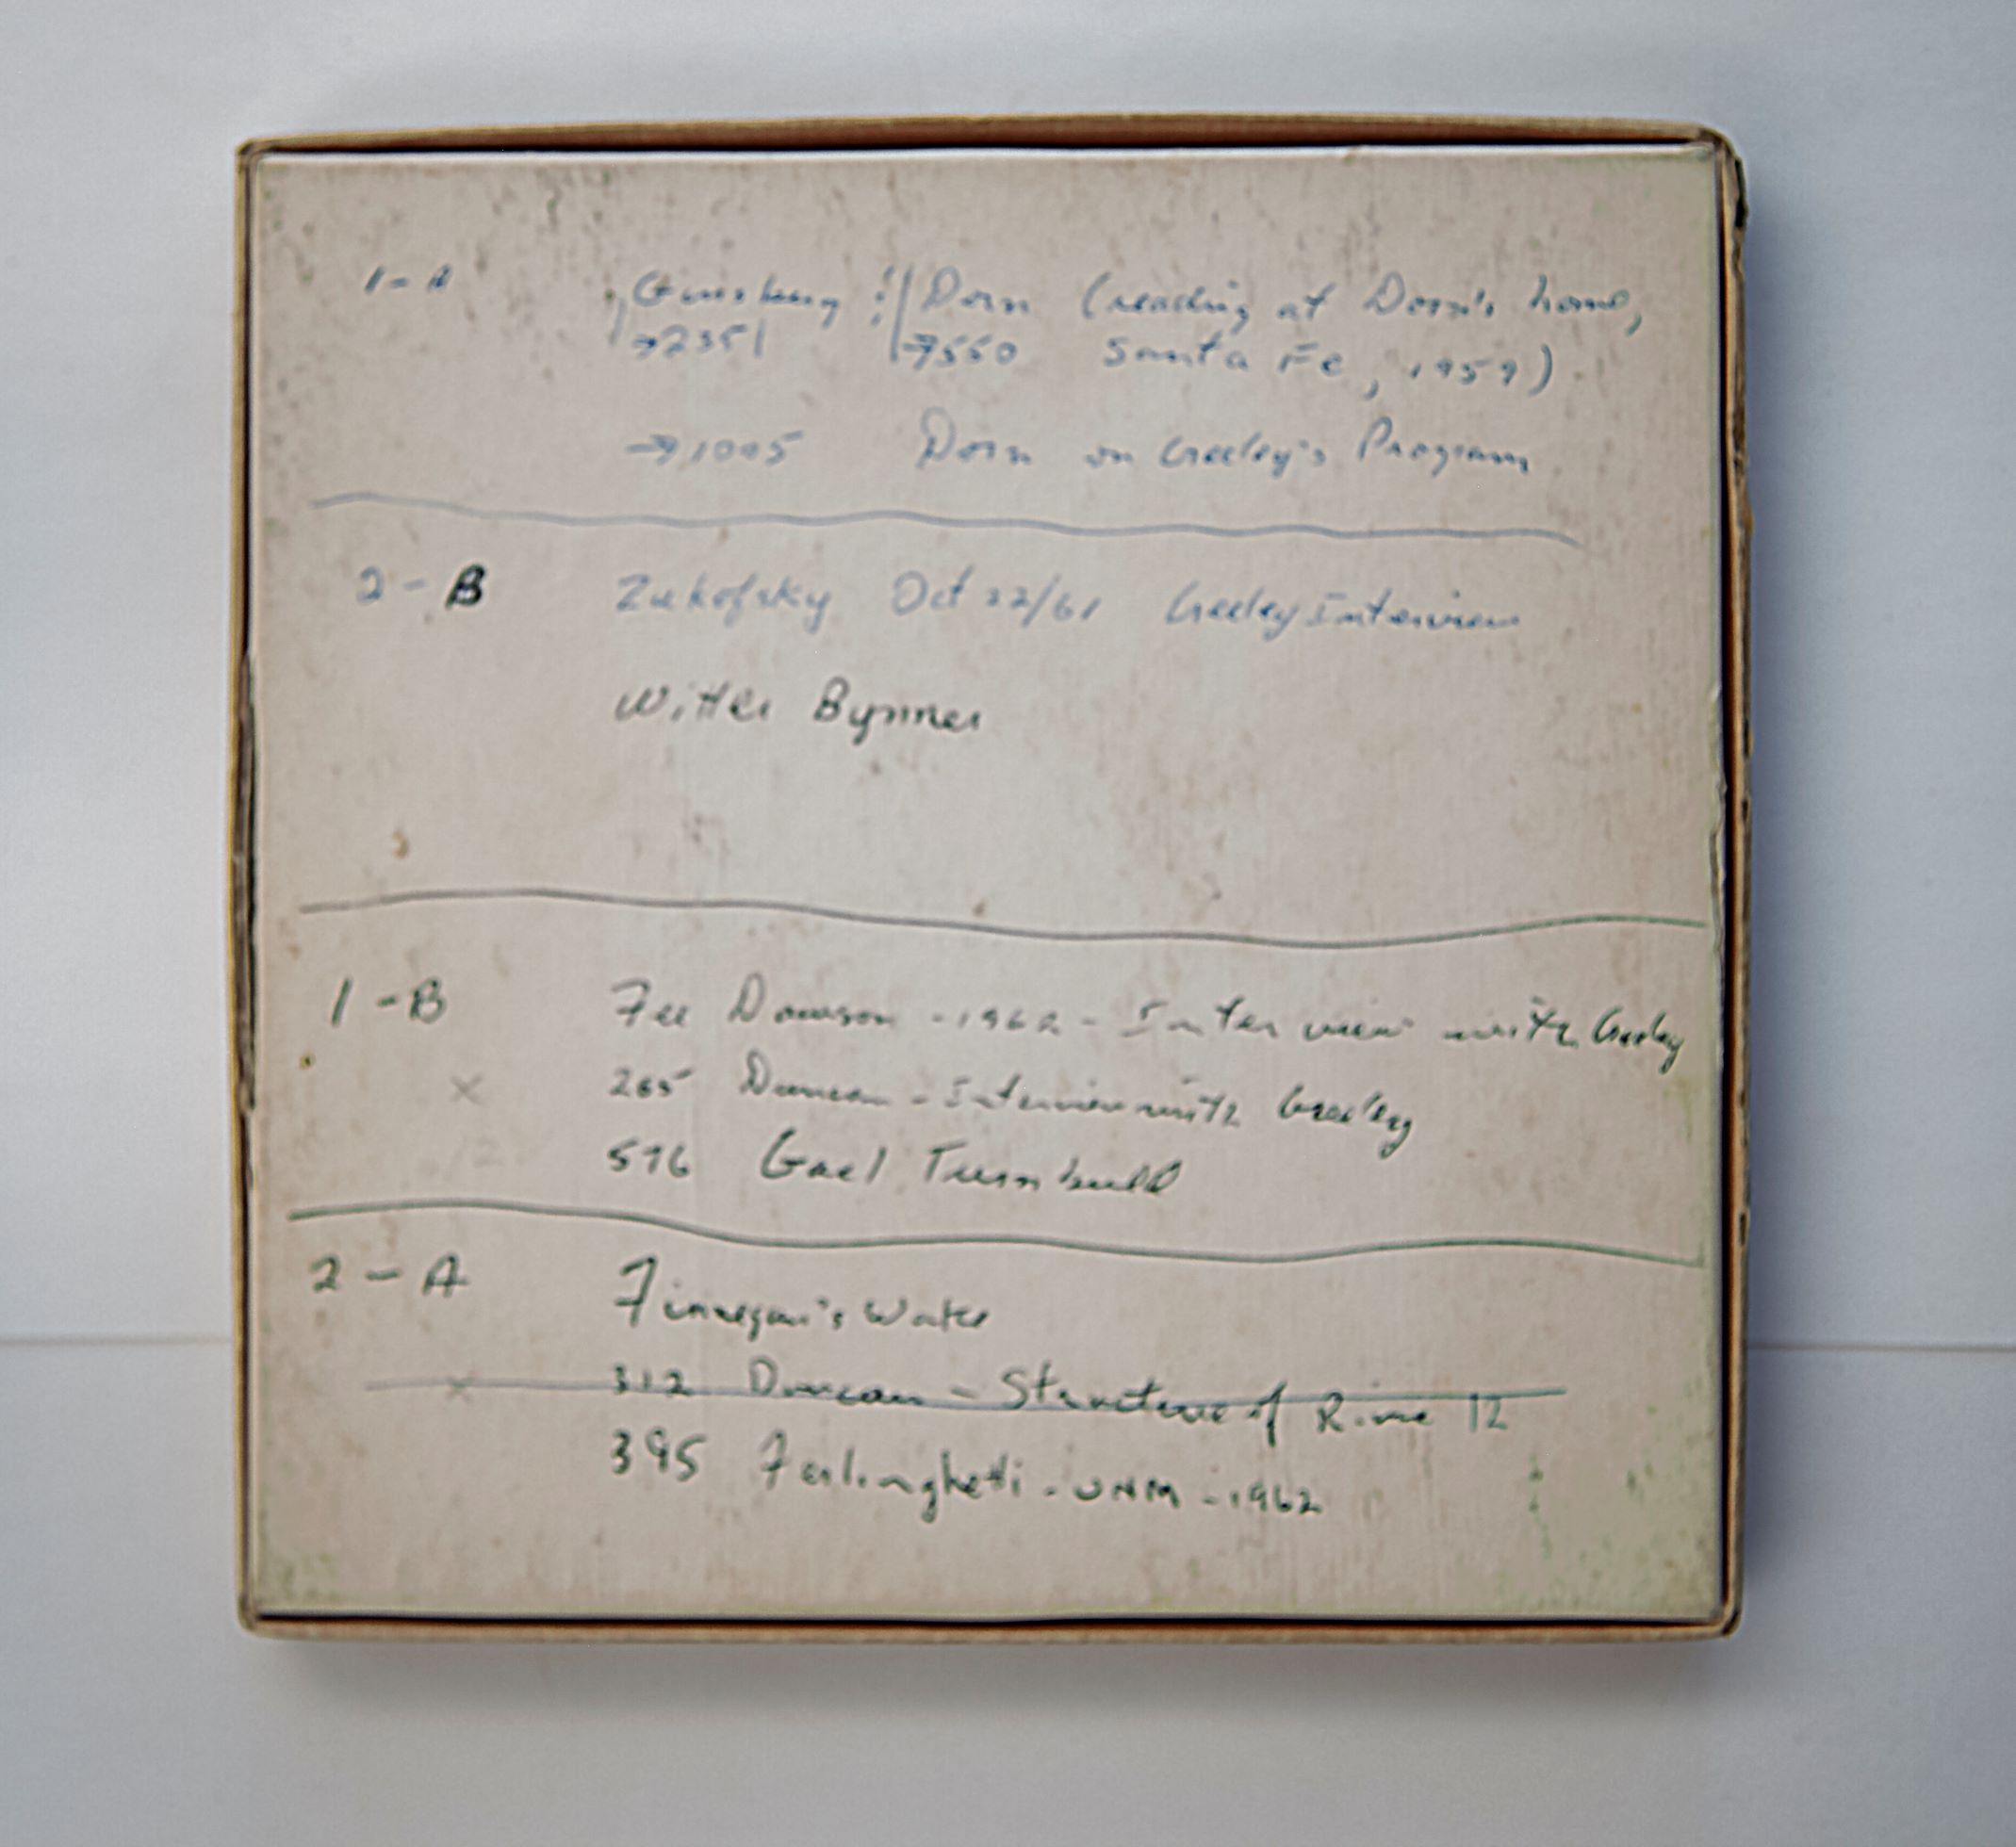 1-A Ginsberg : Dorn (reading at Dorn's home,
→ 2351 → 7550 Santa Fe, 1959)
→ 1005 Dorn on Creeley's Program
2-B Zukofsky Oct 22/61 Creeley Interview
Witter Bynner
1-B Fee Dawson - 1962 - Interview with Creeley
x 265 Duncan - Interview with Creeley
576 Gael Turnbull
2-A Finnegan's Wake
x 312 Duncan - Structure of Rime 12
395 Ferlinghetti - UNM - 1962